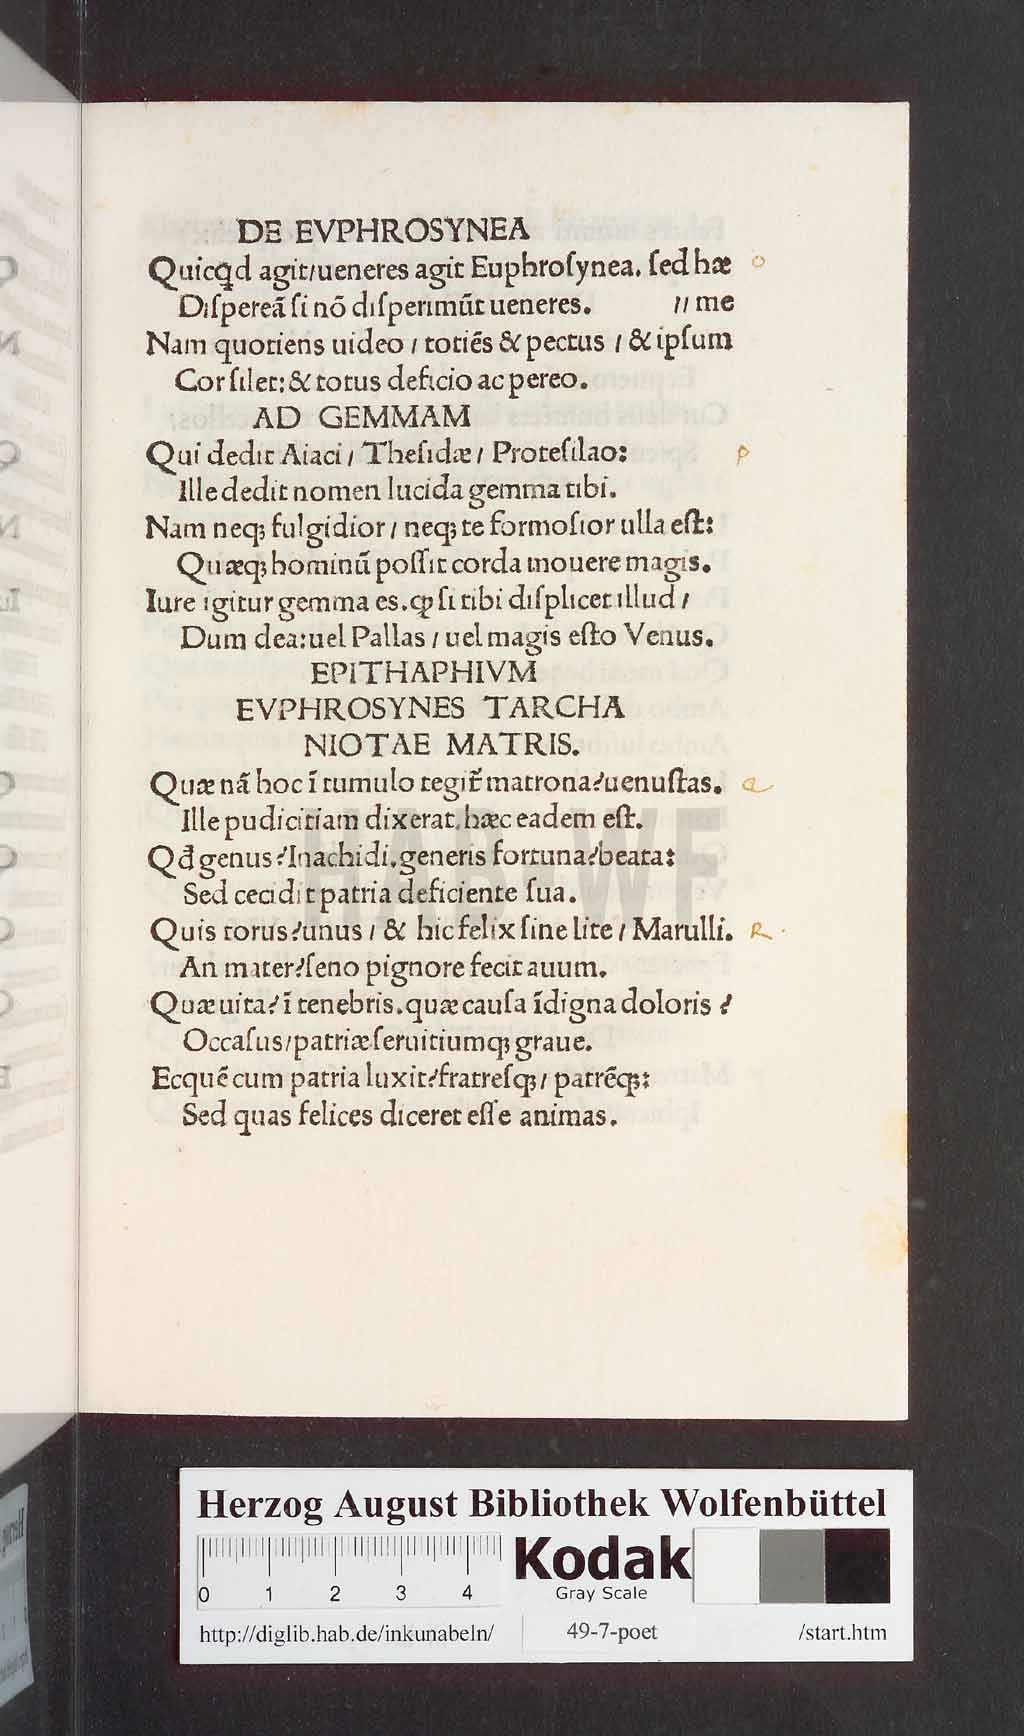 DE EVPHROSYNEA
Quicꝗd agit/ueneres agit Euphroſynea. ſed hæ o
Diſpereã ſi nõ diſperimũt ueneres. // me
Nam quotiens uideo / totiẽs & pectus / & ipſum
Cor ſilet: & totus deficio ac pereo.
AD GEMMAM
Qui dedit Aiaci / Theſidæ / Proteſilao: p
Ille dedit nomen lucida gemma tibi.
Nam neqꝫ fulgidior / neqꝫ te formoſior ulla eſt:
Quæqꝫ hominũ poſſit corda mouere magis.
Iure igitur gemma es. ꝙ ſi tibi diſplicet illud /
Dum dea: uel Pallas / uel magis eſto Venus.
EPITHAPHIVM
EVPHROSYNES TARCHA
NIOTAE MATRIS.
Quæ nã hoc ĩ tumulo tegit̃ matrona? uenuſtas. Q
Ille pudicitiam dixerat. hæc eadem eſt.
Qđ genus? Inachidi. generis fortuna? beata:
Sed cecidit patria deficiente ſua.
Quis torus? unus / & hic felix ſine lite / Marulli. R.
An mater? ſeno pignore fecit auum.
Quæ uita? ĩ tenebris. quæ cauſa ĩdigna doloris?
Occaſus/patriæ ſeruitiumqꝫ graue.
Ecquẽ cum patria luxit? fratreſqꝫ / patrẽqꝫ:
Sed quas felices diceret eſſe animas.
HAB WF
Herzog August Bibliothek Wolfenbüttel
0 1 2 3 4
Kodak
Gray Scale
http://diglib.hab.de/inkunabeln/ 49-7-poet /start.htm